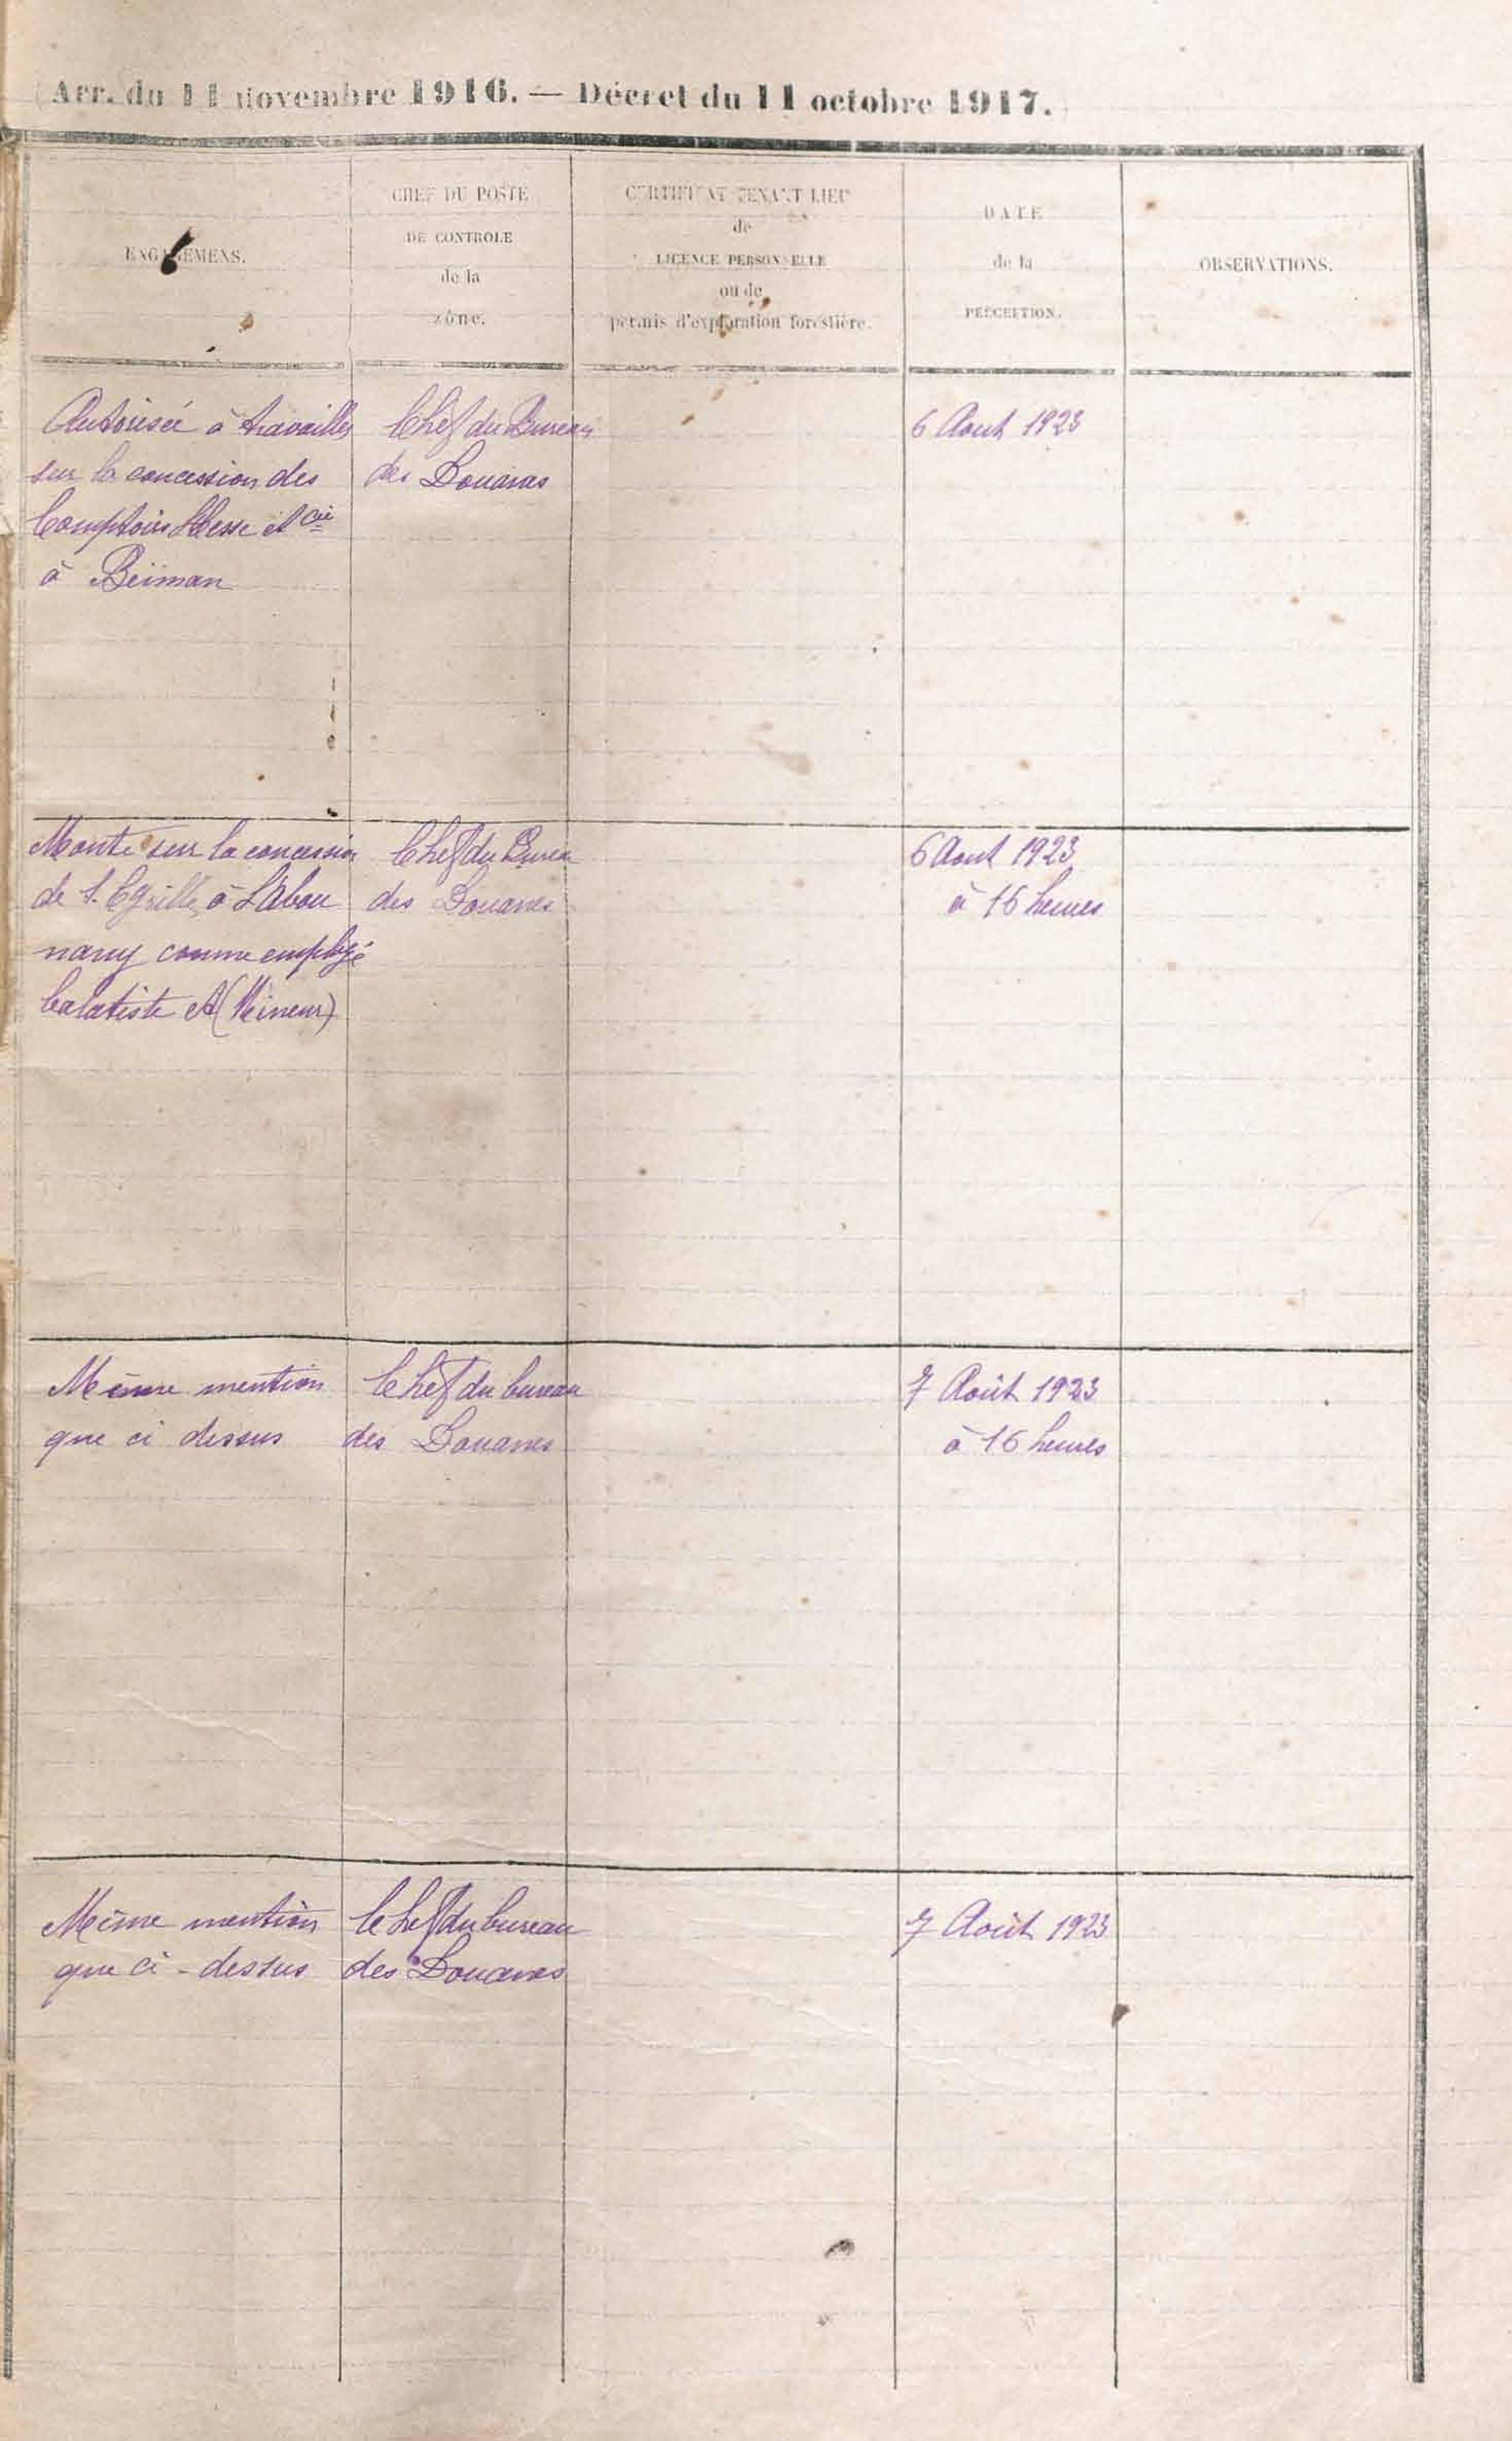 (Arr. du 11 novembre 1916. — Décret du 11 octobre 1917.)
ENGAGEMENS.
CHEF DU POSTE
DE CONTROLE
de la
zône.
CERTIFICAT TENANT LIEU
de
LICENCE PERSONNELLE
ou de
permis d'exploration forestière.
DATE
de la
PERCEPTION.
OBSERVATIONS.
Autorisée à travailler
sur la concession des
Comptoirs Hesse et Cie
à Beiman
Chef du Bureau
des Douanes
6 Aout 1923
Monte sur la concession
de S. Cyrille à L'Abou
nany comme employé
balatiste et (Mineur)
Chef du Bureau
des Douanes
6 Aout 1923
à 16 heures
Même mention
que ci dessus
Chef du bureau
des Douanes
7 Août 1923
à 16 heures
Même mention
que ci-dessus
Chef du bureau
des Douanes
7 Août 1923